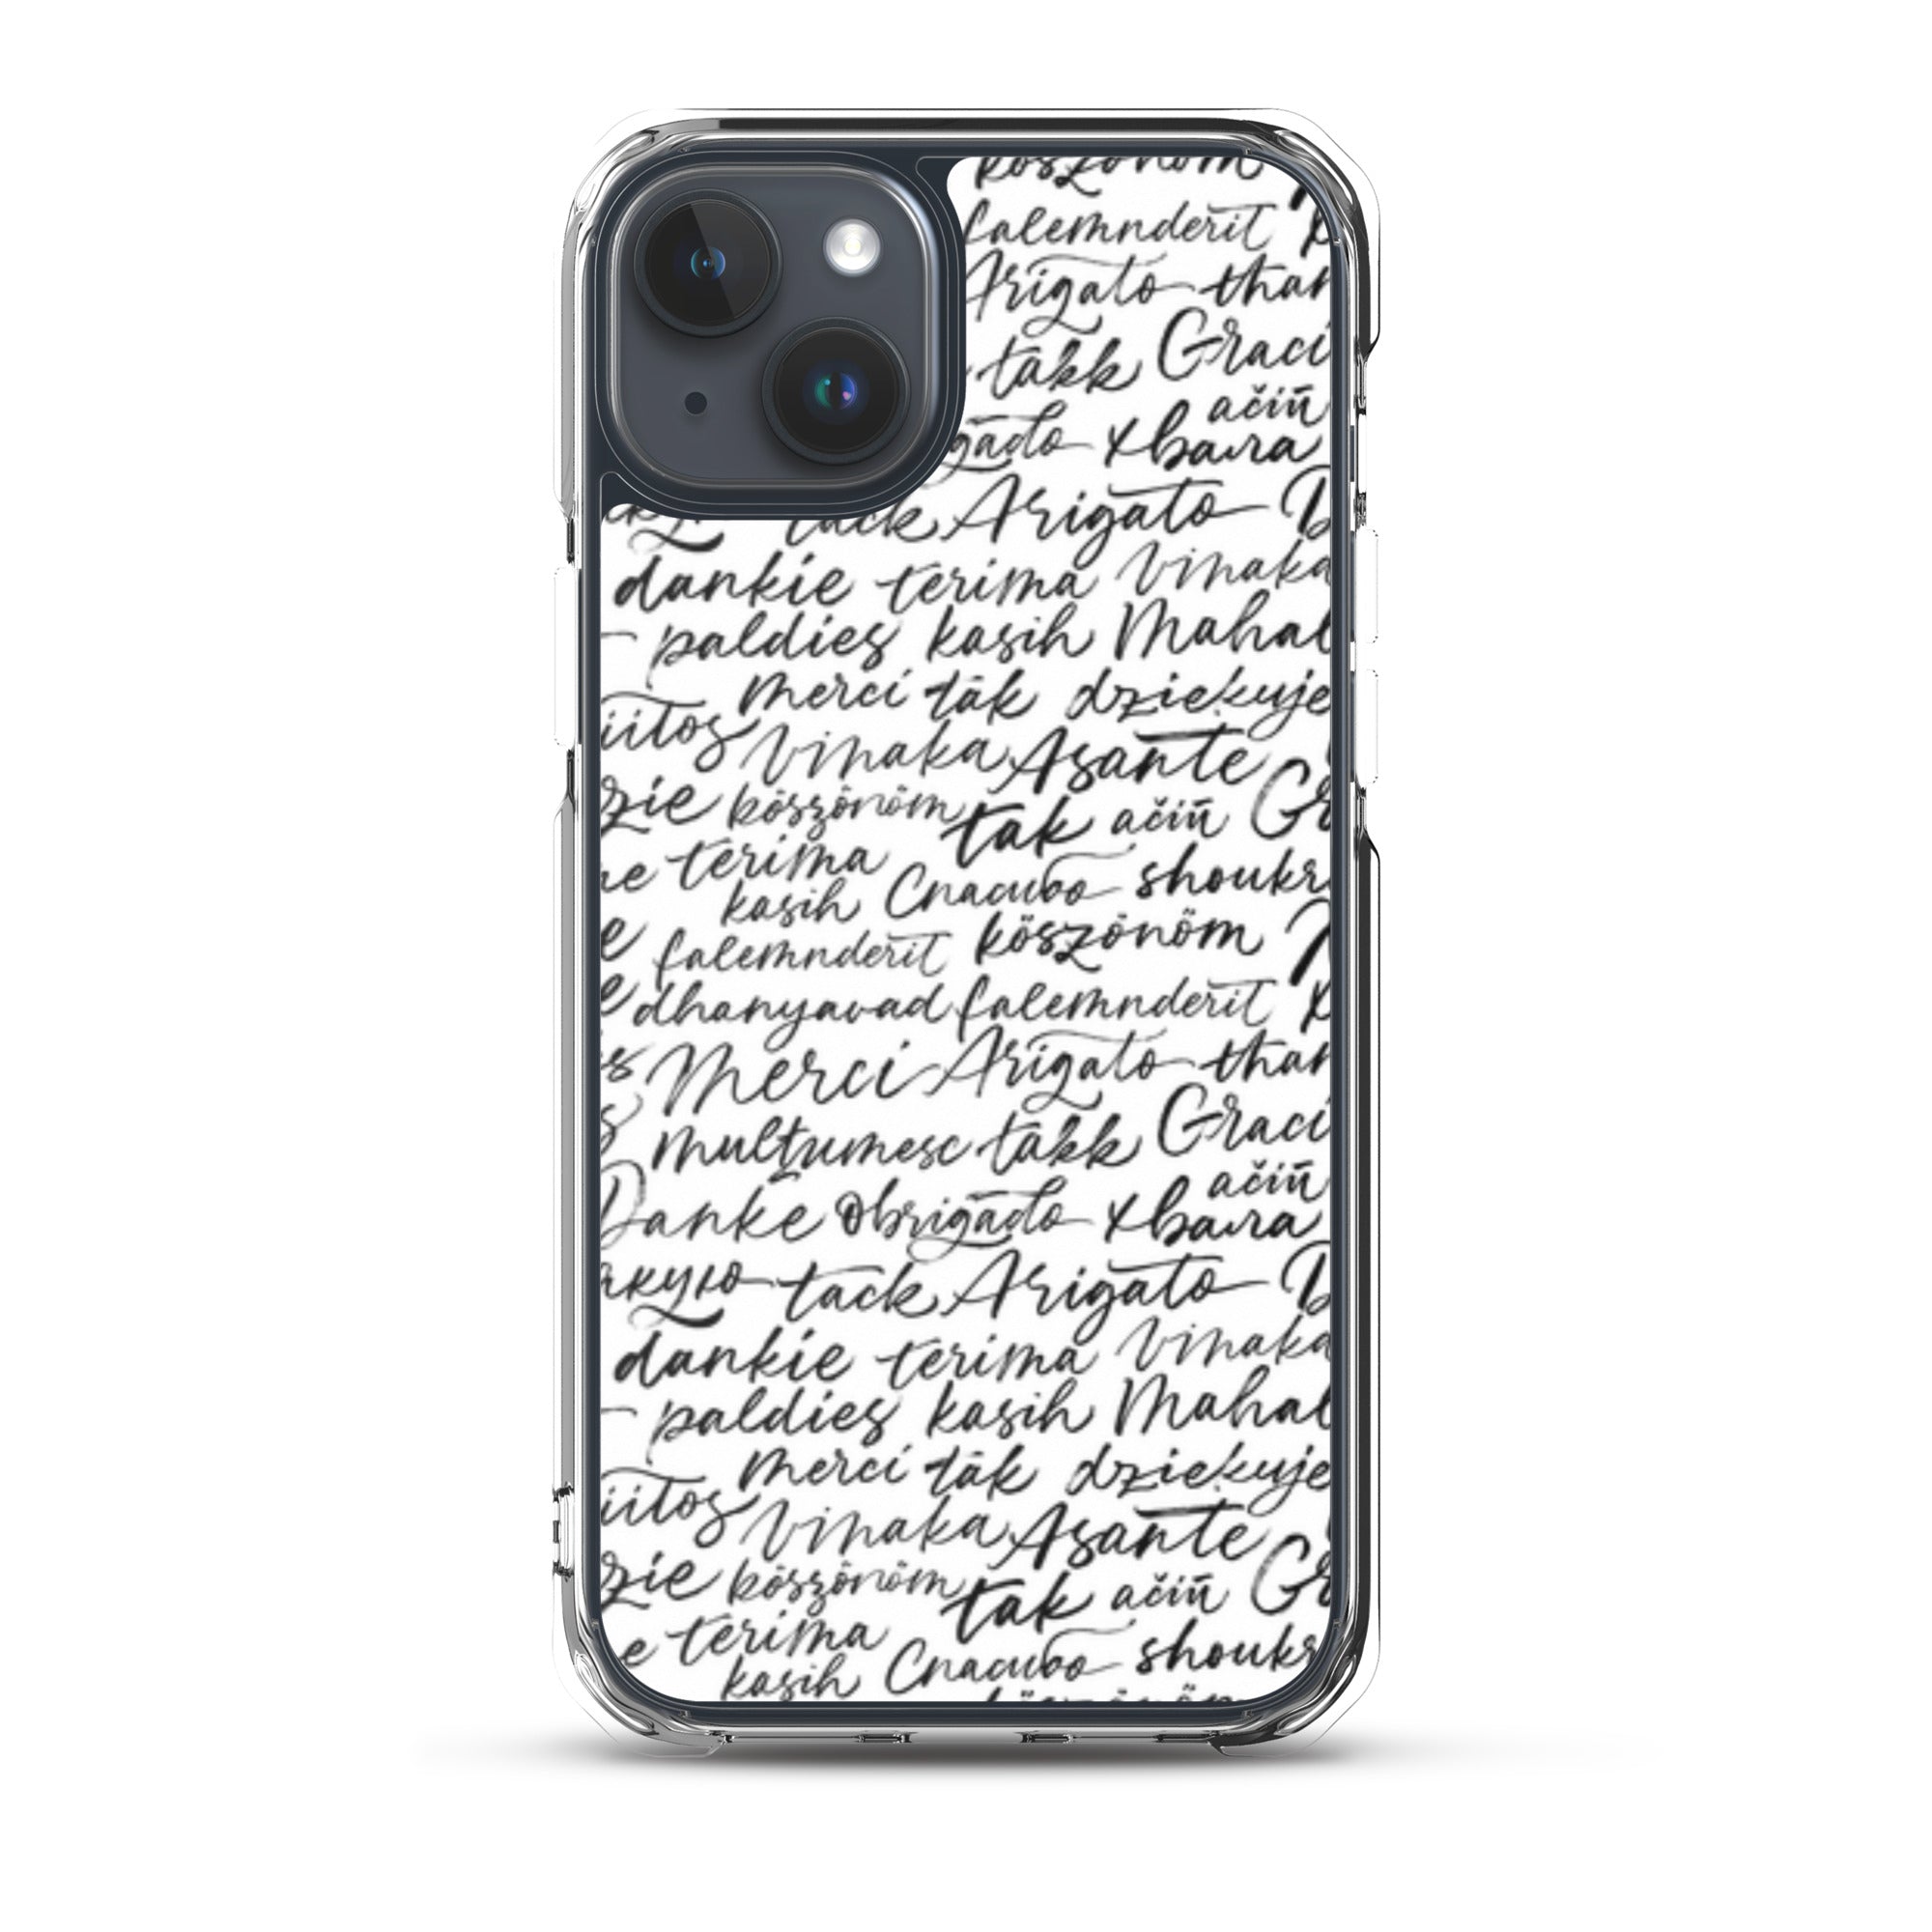 köszönöm
falemnderit
Arigato than
takk Graci
ačiū
gado хвала
tack Arigato D
dankie terima vinaka
paldies kasih Mahal
merci tak dziękuje
iitos vinaka Asante
zie köszönöm tak ačiū Gr
terima
kasih Спасибо shoukr
falemnderit köszönöm
dhanyavad falemnderit
Merci Arigato than
multumesc takk Graci
ačiū
Danke Obrigado хвала
акую tack Arigato D
dankie terima vinaka
paldies kasih Mahal
merci tak dziękuje
iitos vinaka Asante
zie köszönöm tak ačiū Gr
terima
kasih Спасибо shoukr